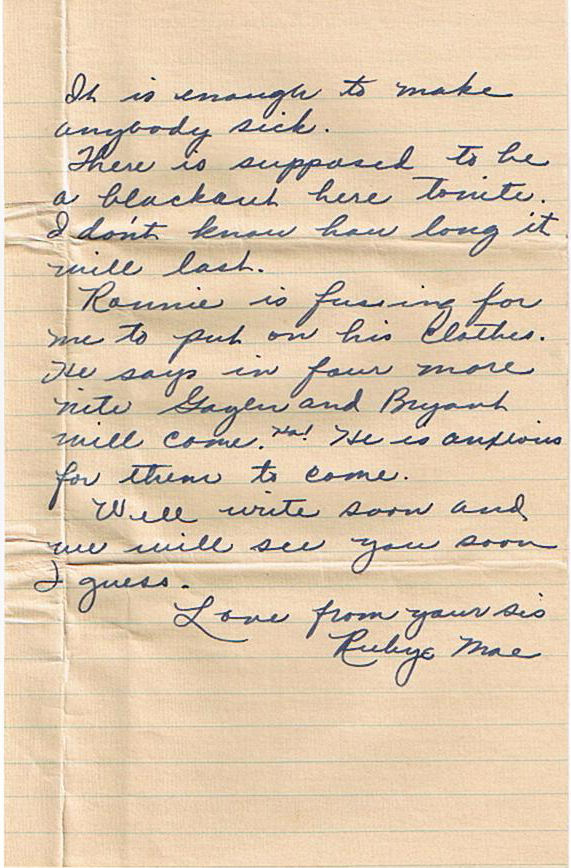 It is enough to make
anybody sick.
There is supposed to be
a blackout here tonite.
I don't know how long it
will last.
Ronnie is fussing for
me to put on his clothes.
He says in four more
nite Gaylen and Bryant
will come. Ha! He is anxious
for them to come.
Well write soon and
we will see you soon
I guess.
Love from your sis
Rubye Mae